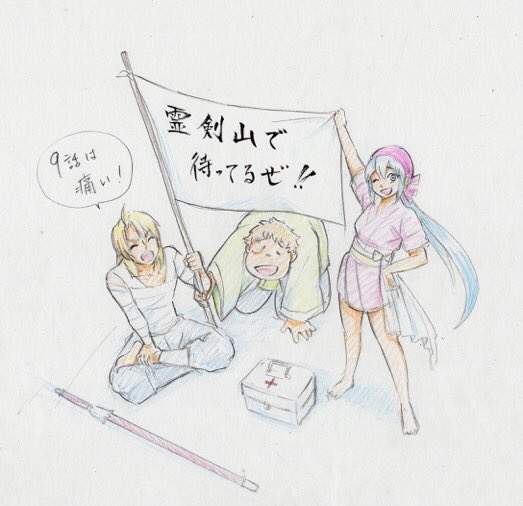 霊剣山で
待ってるぜ!!
9話は
痛い!